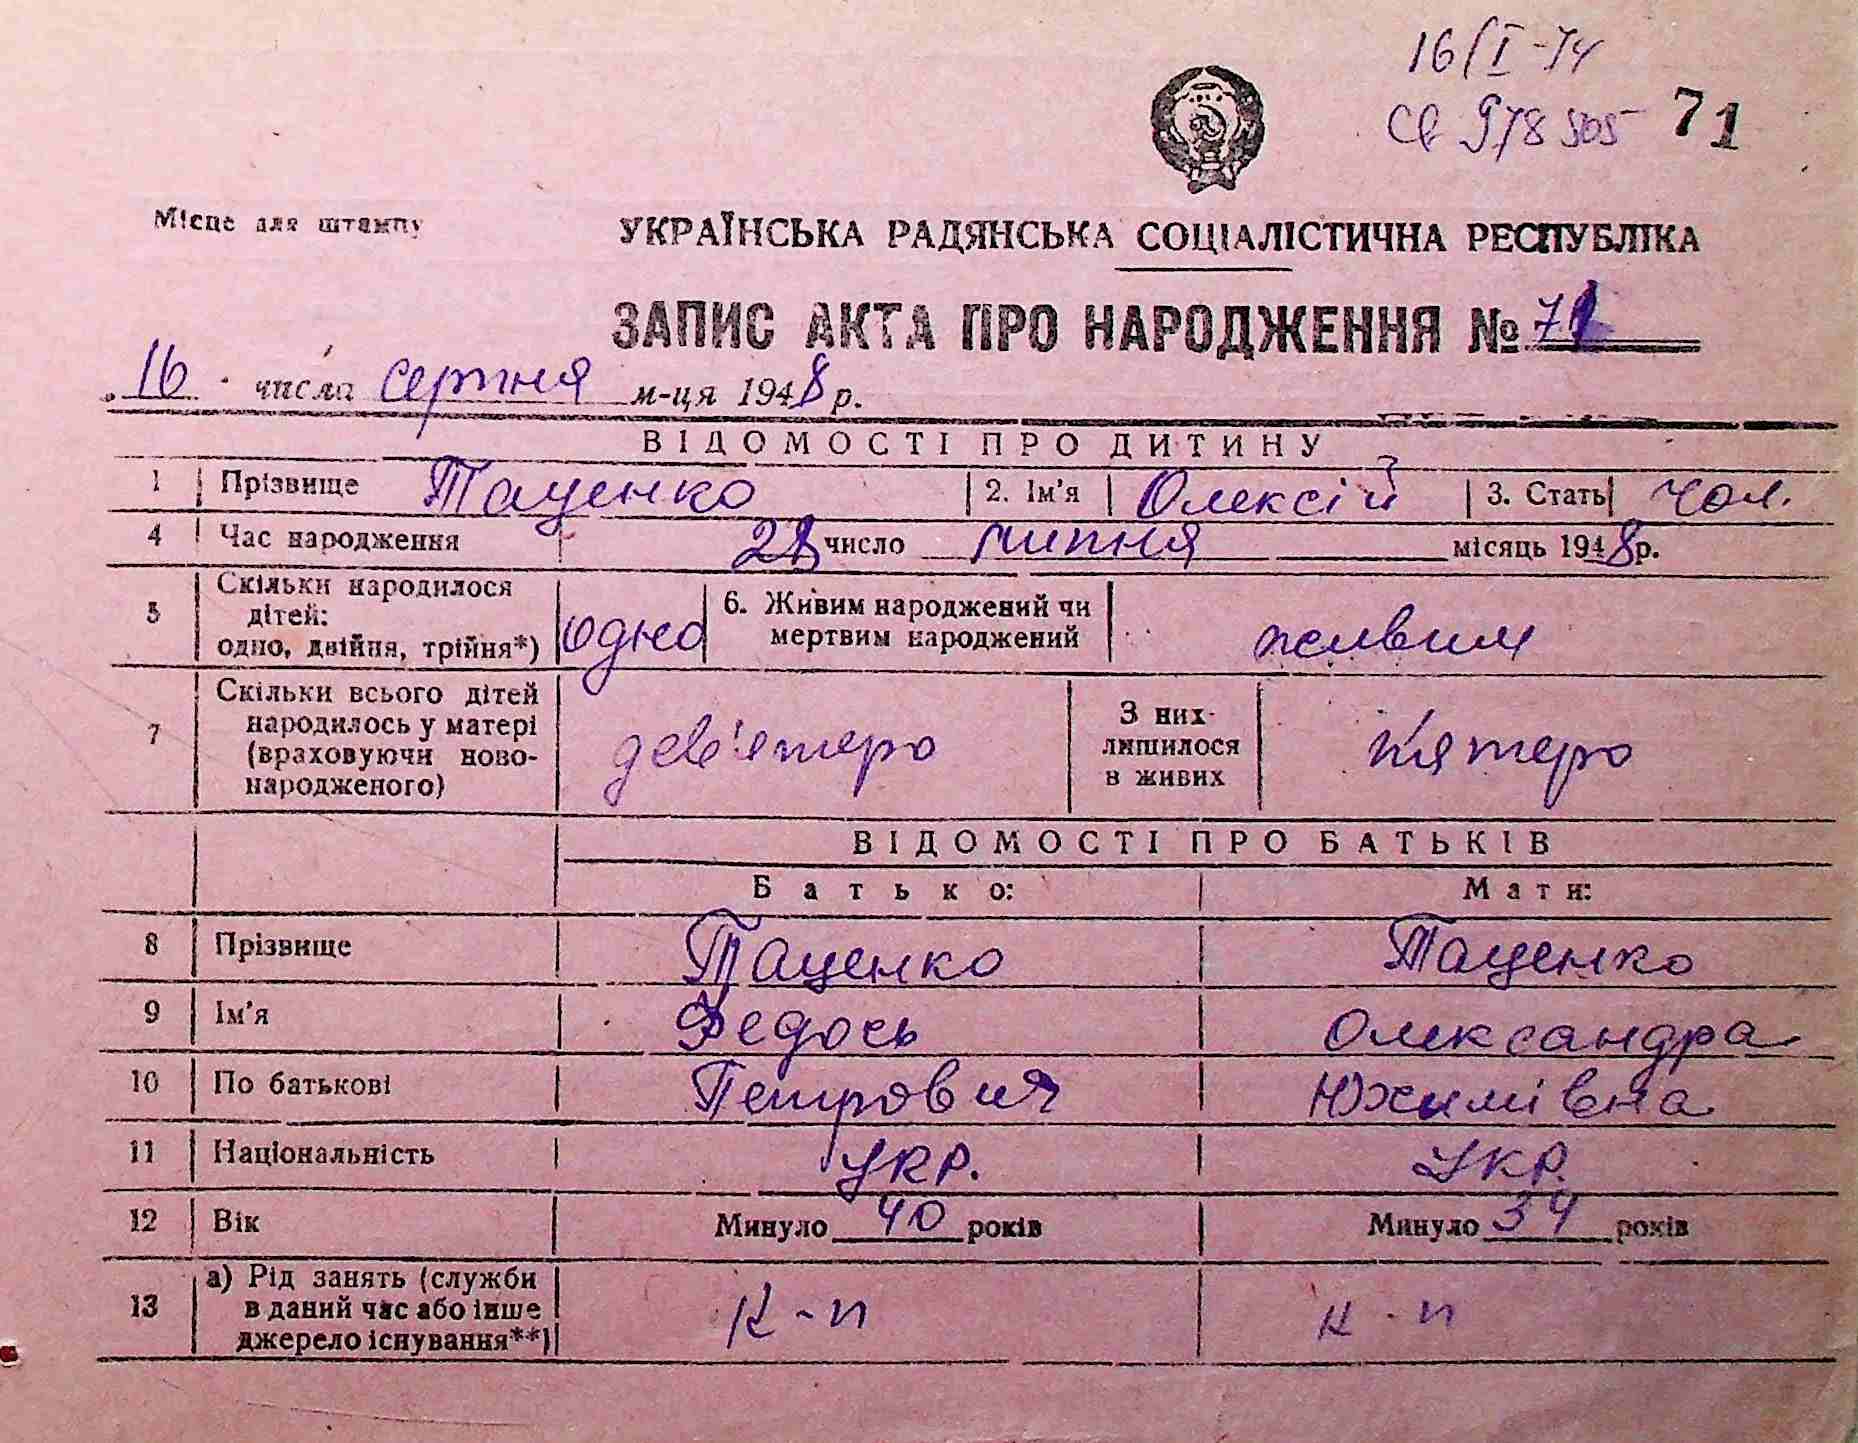 16/I-74
СБ 978505 71
Місце для штампу
УКРАЇНСЬКА РАДЯНСЬКА СОЦІАЛІСТИЧНА РЕСПУБЛІКА
ЗАПИС АКТА ПРО НАРОДЖЕННЯ № 71
16 числа серпня м-ця 1948 р.
ВІДОМОСТІ ПРО ДИТИНУ
1 Прізвище Таценко 2. Ім'я Олексій 3. Стать чол.
4 Час народження число липня місяць 1948 р.
5 Скільки народилося дітей: одно, двійня, трійня*) одно 6. Живим народжений чи мертвим народжений живим
7 Скільки всього дітей народилось у матері (враховуючи новонародженого) дев'ятеро З них лишилося в живих п'ятеро
ВІДОМОСТІ ПРО БАТЬКІВ
Батько: Мати:
8 Прізвище Таценко Таценко
9 Ім'я Федось Олександра
10 По батькові Петрович Юхимівна
11 Національність укр. укр.
12 Вік Минуло 40 років Минуло 34 років
13 а) Рід занять (служби в даний час або інше джерело існування**) к-п к-п